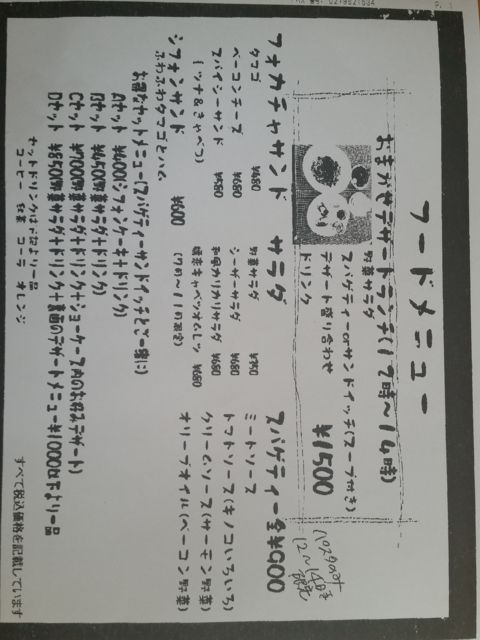 フードメニュー
おまかせデザートランチ(12時~14時)
野菜サラダ
スパゲティーorサンドイッチ(スープ付き)
デザート盛り合わせ
ドリンク ¥1500
12〜14時
フォカチャサンド
タマゴ ¥480
ベーコンチーズ ¥680
スパイシーサンド ¥580
(ツナ&きゃべつ)
シフォンサンド ¥600
ふわふわタマゴとハム
サラダ
野菜サラダ
シーザーサラダ ¥680
和風 サラダ ¥680
キャベツオムレツ ¥680
(7時~11時限定)
スパゲティー全¥900
ミートソース
トマトソース(キノコいろいろ)
クリームソース(サーモン野菜)
オリーブオイル(ベーコン野菜)
お得なセットメニュー(スパゲティーサンドイッチとご一緒に)
セット ¥400(シフォンケーキ+ドリンク)
Bセット ¥450(野菜サラダ+ドリンク)
Cセット ¥700(野菜サラダ+ドリンク+ショーケース内のお好みデザート)
Dセット ¥850(野菜サラダ+ドリンク+裏面のデザートメニュー¥1000以下より一品
セットドリンクは下記より一品
コーヒー 紅茶 コーラ オレンジ
すべて税込価格を記載しています